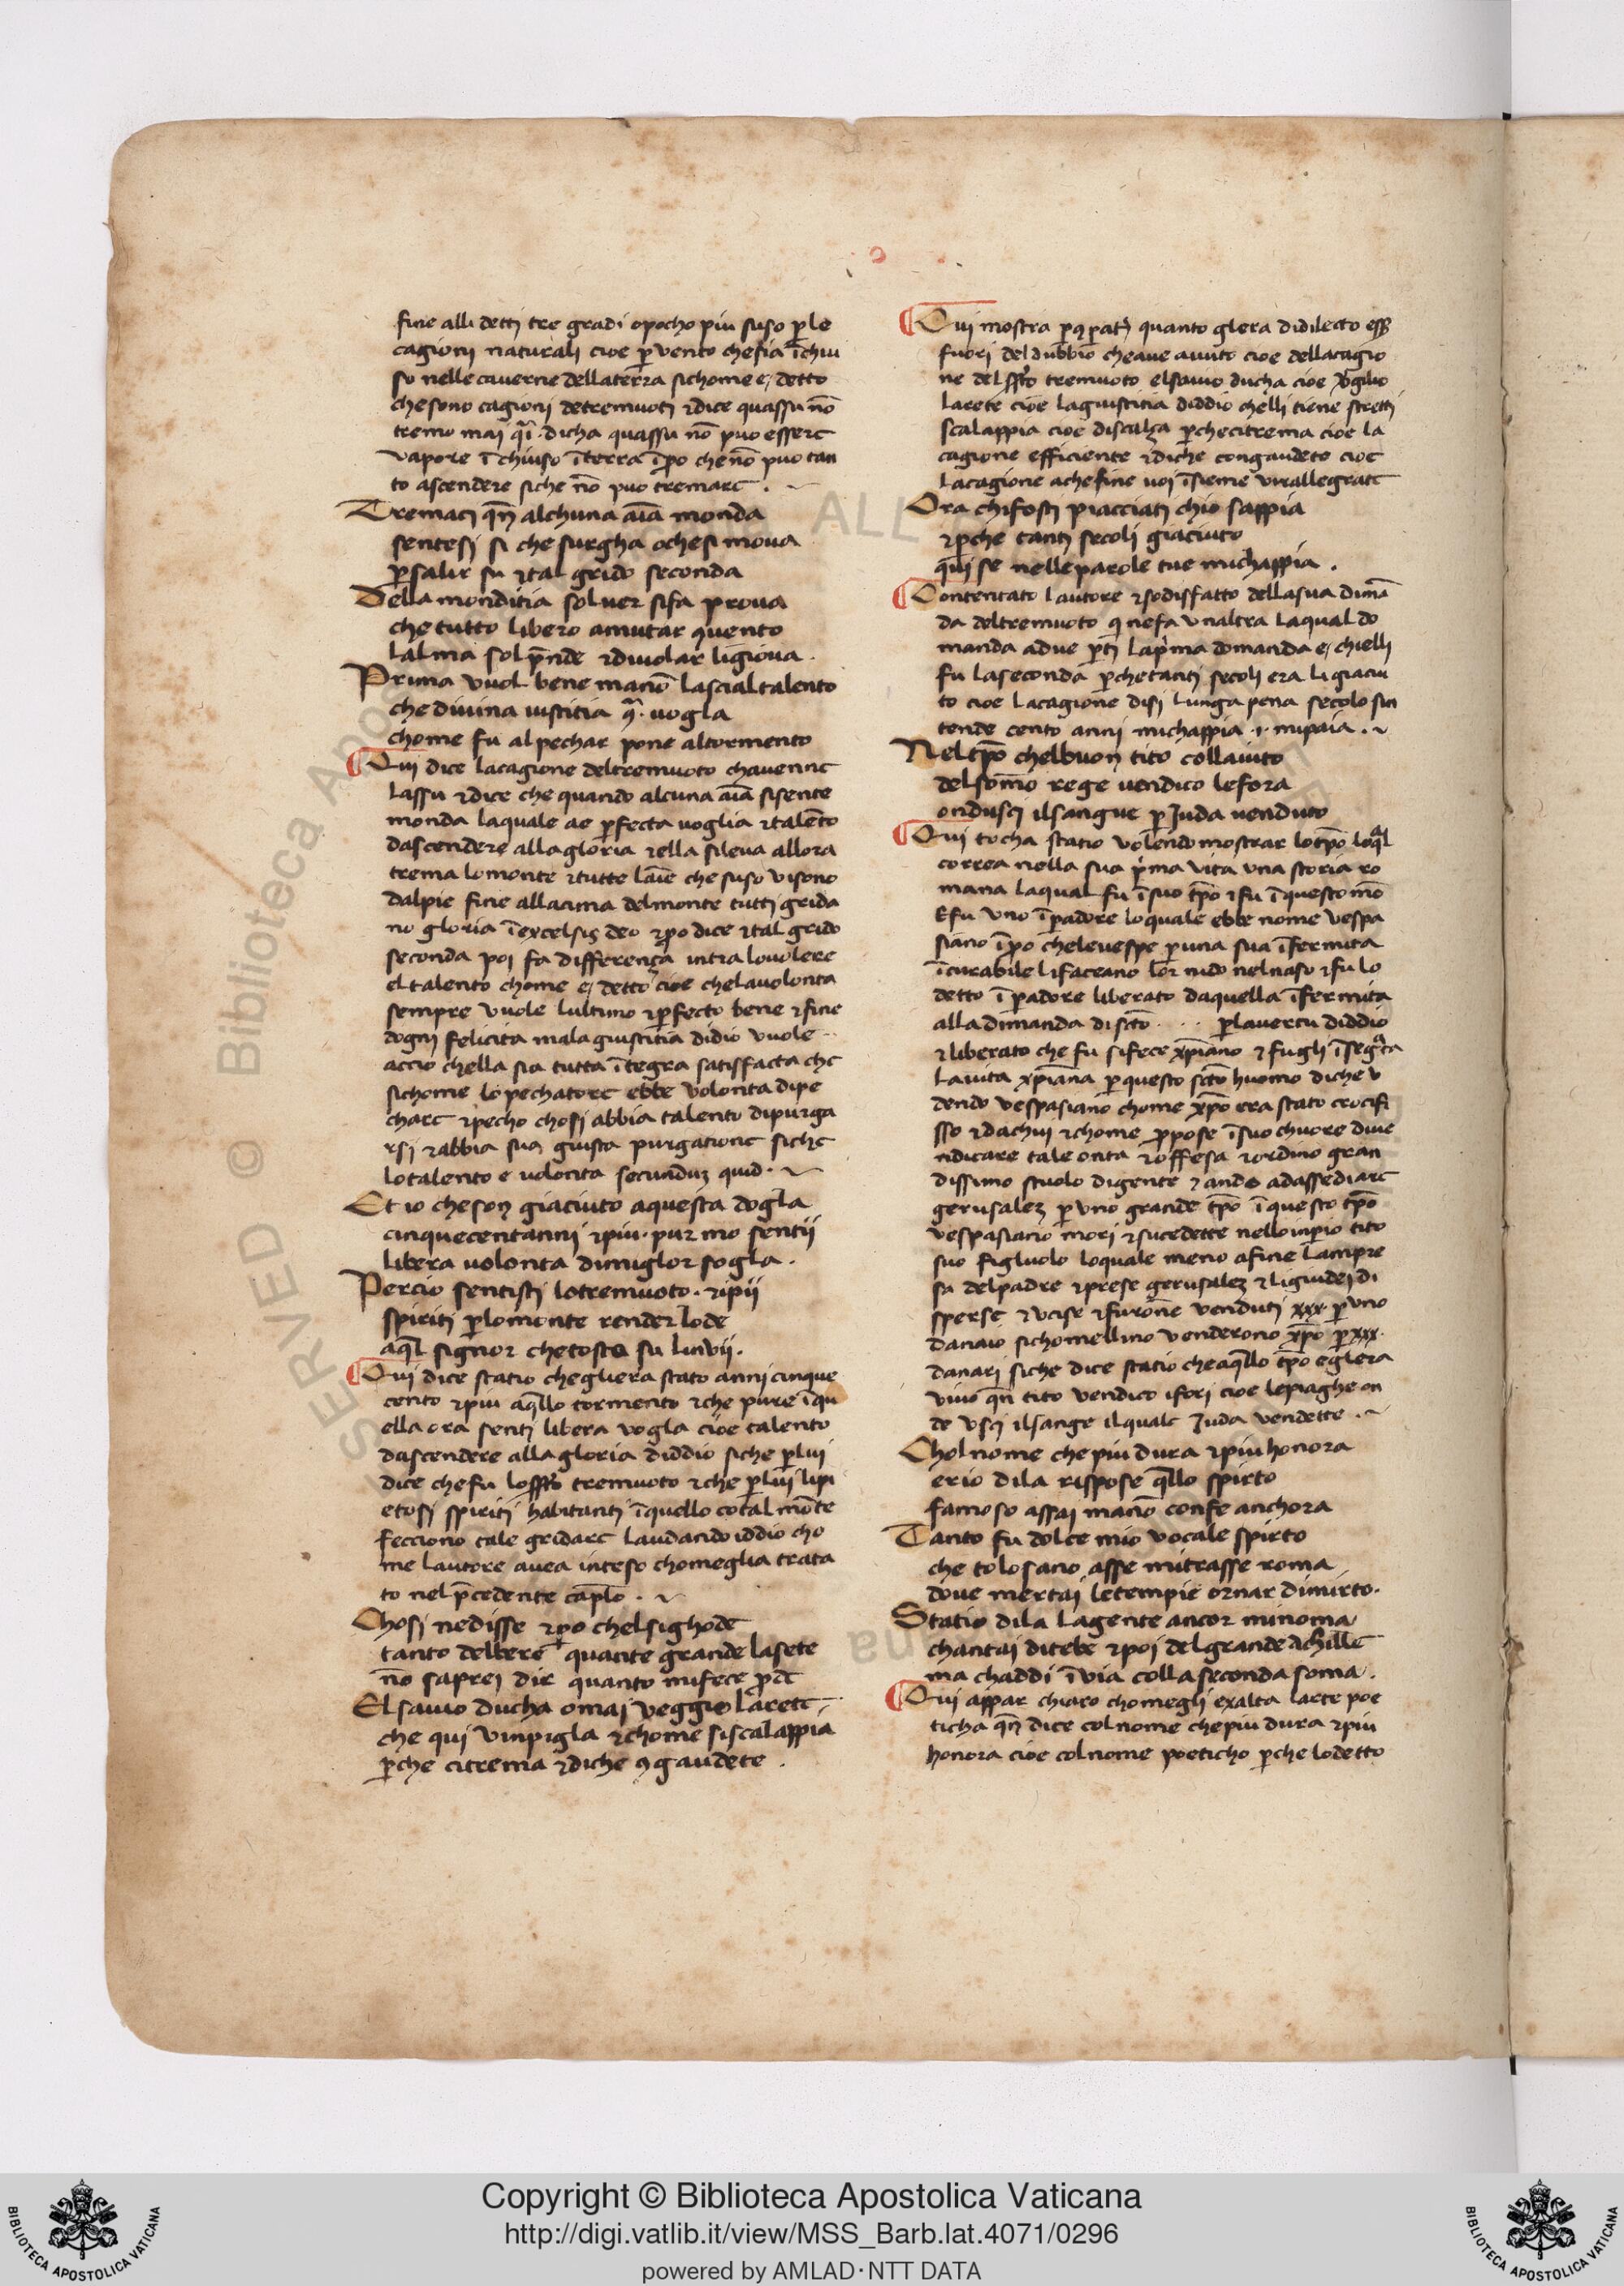 fine alli detti tre gradi opocho piu suso p̱ le
cagioni naturali cioe p̱ vento chesia ī chiu
so nelle cauerne della terra sichome e, detto
che sono cagioni de tremuoti ⁊ dice quassu nō
tremo mai q̄i. dicha quassu nō puo essere
vapore ī chiuso ī terra īp̱o che nō puo tan
to ascendere siche nō puo tremare .
Tremaci qn̄ alchuna aīa monda
sentesi si che surgha oche si mova
p̱ salir su ⁊ tal grido seconda
Della monditia sol uer sifa prova
che tutto libero amutar quento
lalma sol p̄nde ⁊ diuolar ligiova .
Prima vuol bene manō lascial talento
che divina iustitia q̄. vogla
chome fu al pechar pone al tormento
Qui dice lacagione del tremuoto chauenne
lassu ⁊ dice che quando alcuna aīa sisente
monda laquale ae p̱fecta uoglia ⁊ talento
dascendere alla gloria ⁊ ella sileua allora
trema lo monte ⁊ tutte laīe che suso visono
dalpie fine alla cima del monte tutti grida
no gloria ī excelsis deo ⁊ p̱o dice ⁊ tal grido
seconda poi fa differença intra louolere
el talento chome e, detto cioe chela uolonta
sempre vuole lultimo ⁊ p̱fecto bene ⁊ fine
dogni felicita mala giustitia didio vuole
accio chella sia tutta ītegra satisfacta che
sichome lo pechatore ebbe volonta dipe
chare ⁊ pecho chosi abbia talento dipurga
rsi ⁊ abbia sua giusta purgatione siche
lo talento e uolonta secundum quid .
Et io che son giaciuto aquesta dogla
cinquecentanni ⁊ piu. pur mo sentii
libera uolonta dimiglor sogla .
Percio sentisti lo tremuoto. ⁊ ipii
spiriti p̱ lo monte render lode
aql̄ signor che tosto su linvii .
Qui dice statio che gliera stato anni cinque
cento ⁊ piu aqllo tormento ⁊ che pure īqu
ella ora senti libera vogla cioe talento
dascendere alla gloria diddio siche p̱ lui
dice che fu lo sſto tremuoto ⁊ che p̱ lui lipi
etosi spiriti habitanti īquello cotal mōte
fecciono tale gridare laudando iddio cho
me lautore auea inteso chomeglia trata
to nel p̄cedente caplō .
Chosi nedisse ⁊ p̱o chel sighode
tanto delbere quante grande lasete
nō saprei dir quanto mifece p̱de
El sauio ducha omai veggio larete
che qui vinpigla ⁊ chome siscalappia
p̱che citrema ⁊ diche ꝯgaudete .
Qui mostra p̱ q̱ pat̄ quanto glera didilecto ess̄
fuori del dubbio cheaue auuto cioe della cagio
ne del sſto tremuoto el sauio ducha cioe v̓gilio
la rete cioe lagiustitia diddio chelli tiene stretti
scalappia cioe discalza p̱che citrema cioe la
cagione efficiente ⁊ diche congaudeto cioe
lacagione achefine uoi īsieme virallegrate
Ora chi fosti piacciati chio sappia
⁊ p̱che tanti secoli giaciuto
qui se nelle parole tue michappia .
Contentato lautore ⁊ sodisfatto della sua dimā
da del tremuoto q nefa vnaltra laqual do
manda adue p̱ti lap̓ma domanda e, chielli
fu la seconda p̱che tanti secoli era li giaciu
to cioe lacagione disi lunga pena secolo sin
tende cento anni michappia .i. mipaia .
Nel tp̄o chel buon tito coll aiuto
del somō rege uendico lefora
ondusci il sangue p̱ Iuda uenduto
Qui tocha statio volendo mostrar lo tp̄o loq̄l
correa nella sua p̓ma vita vna storia ro
mana laqual fu ī suo tp̄o ⁊ fu ī questo mō
E fu vno īp̱adore loquale ebbe nome vespa
siano īp̱o che le uespe p̱ una sua īfermita
īcurabile li faceano lor nido nel naso ⁊ fu lo
detto īp̱adore liberato da quella īfermita
alla dimanda di scto . . . p̱ la uertu diddio
⁊ liberato che fu sifece xp̄iano ⁊ fugli īseg̃ta
la uita xp̄iana p̱ questo scto huomo diche v
dendo vespasiano chome xp̄o era stato crocifi
sso ⁊ dachui ⁊ chome p̱pose ī suo chuore diue
ndicare tale onta ⁊ offesa ⁊ ordino gran
dissimo stuolo digente ⁊ ando adassediare
gerusalem p̱ vno grande tp̄o ī questo tp̄o
vespasiano mori ⁊ sucedette nello inp̱io tito
suo figluolo loquale meno afine lampre
sa del padre ⁊ prese gerusalem ⁊ ligiudei di
sperse ⁊ vcise ⁊ furōne venduti xxx. p̱ vno
danaio sichomellino venderono xp̄o p̱ xxx.
danari siche dice statio che aqllo tp̄o eglera
viuo qn̄ tito vendico ifori cioe lepiaghe on
de vsci il sange il quale Iuda vendette .
Chol nome che piu dura ⁊ piu honora
erio dila rispose qllo spirto
famoso assai manō con fe anchora
Tanto fu dolce mio vocale spirto
che tolosano asse mitrasse roma
doue mertai le tempie ornar dimirto.
Statio dila lagente ancor minoma
chantai ditebe ⁊ poi del grande achille
ma chaddi ī via colla seconda soma .
Qui appar chiaro chomegli exalta larte poe
ticha qn̄ dice col nome che piu dura ⁊ piu
honora cioe col nome poeticho p̱che lo detto
Copyright © Biblioteca Apostolica Vaticana
http://digi.vatlib.it/view/MSS_Barb.lat.4071/0296
powered by AMLAD·NTT DATA
BIBLIOTECA APOSTOLICA VATICANA
BIBLIOTECA APOSTOLICA VATICANA